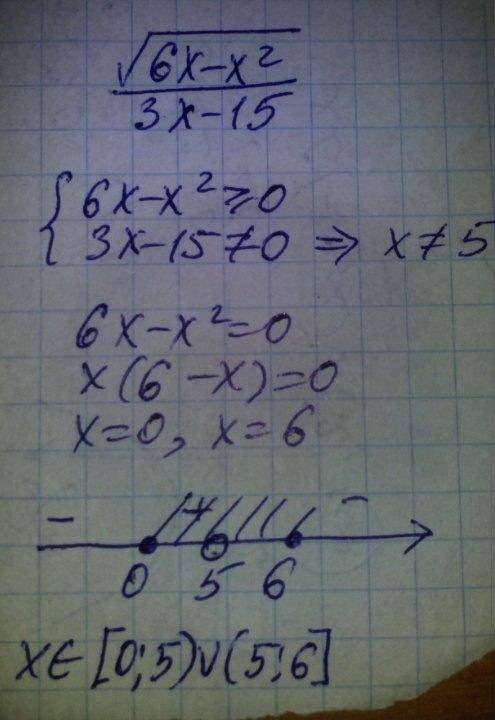 √(6x-x²)
3x-15
{ 6x-x²⩾0
3x-15≠0 ⇒ x≠5
6x-x²=0
x(6-x)=0
x=0, x=6
- + -
0 5 6
x∈[0;5)∪(5;6]